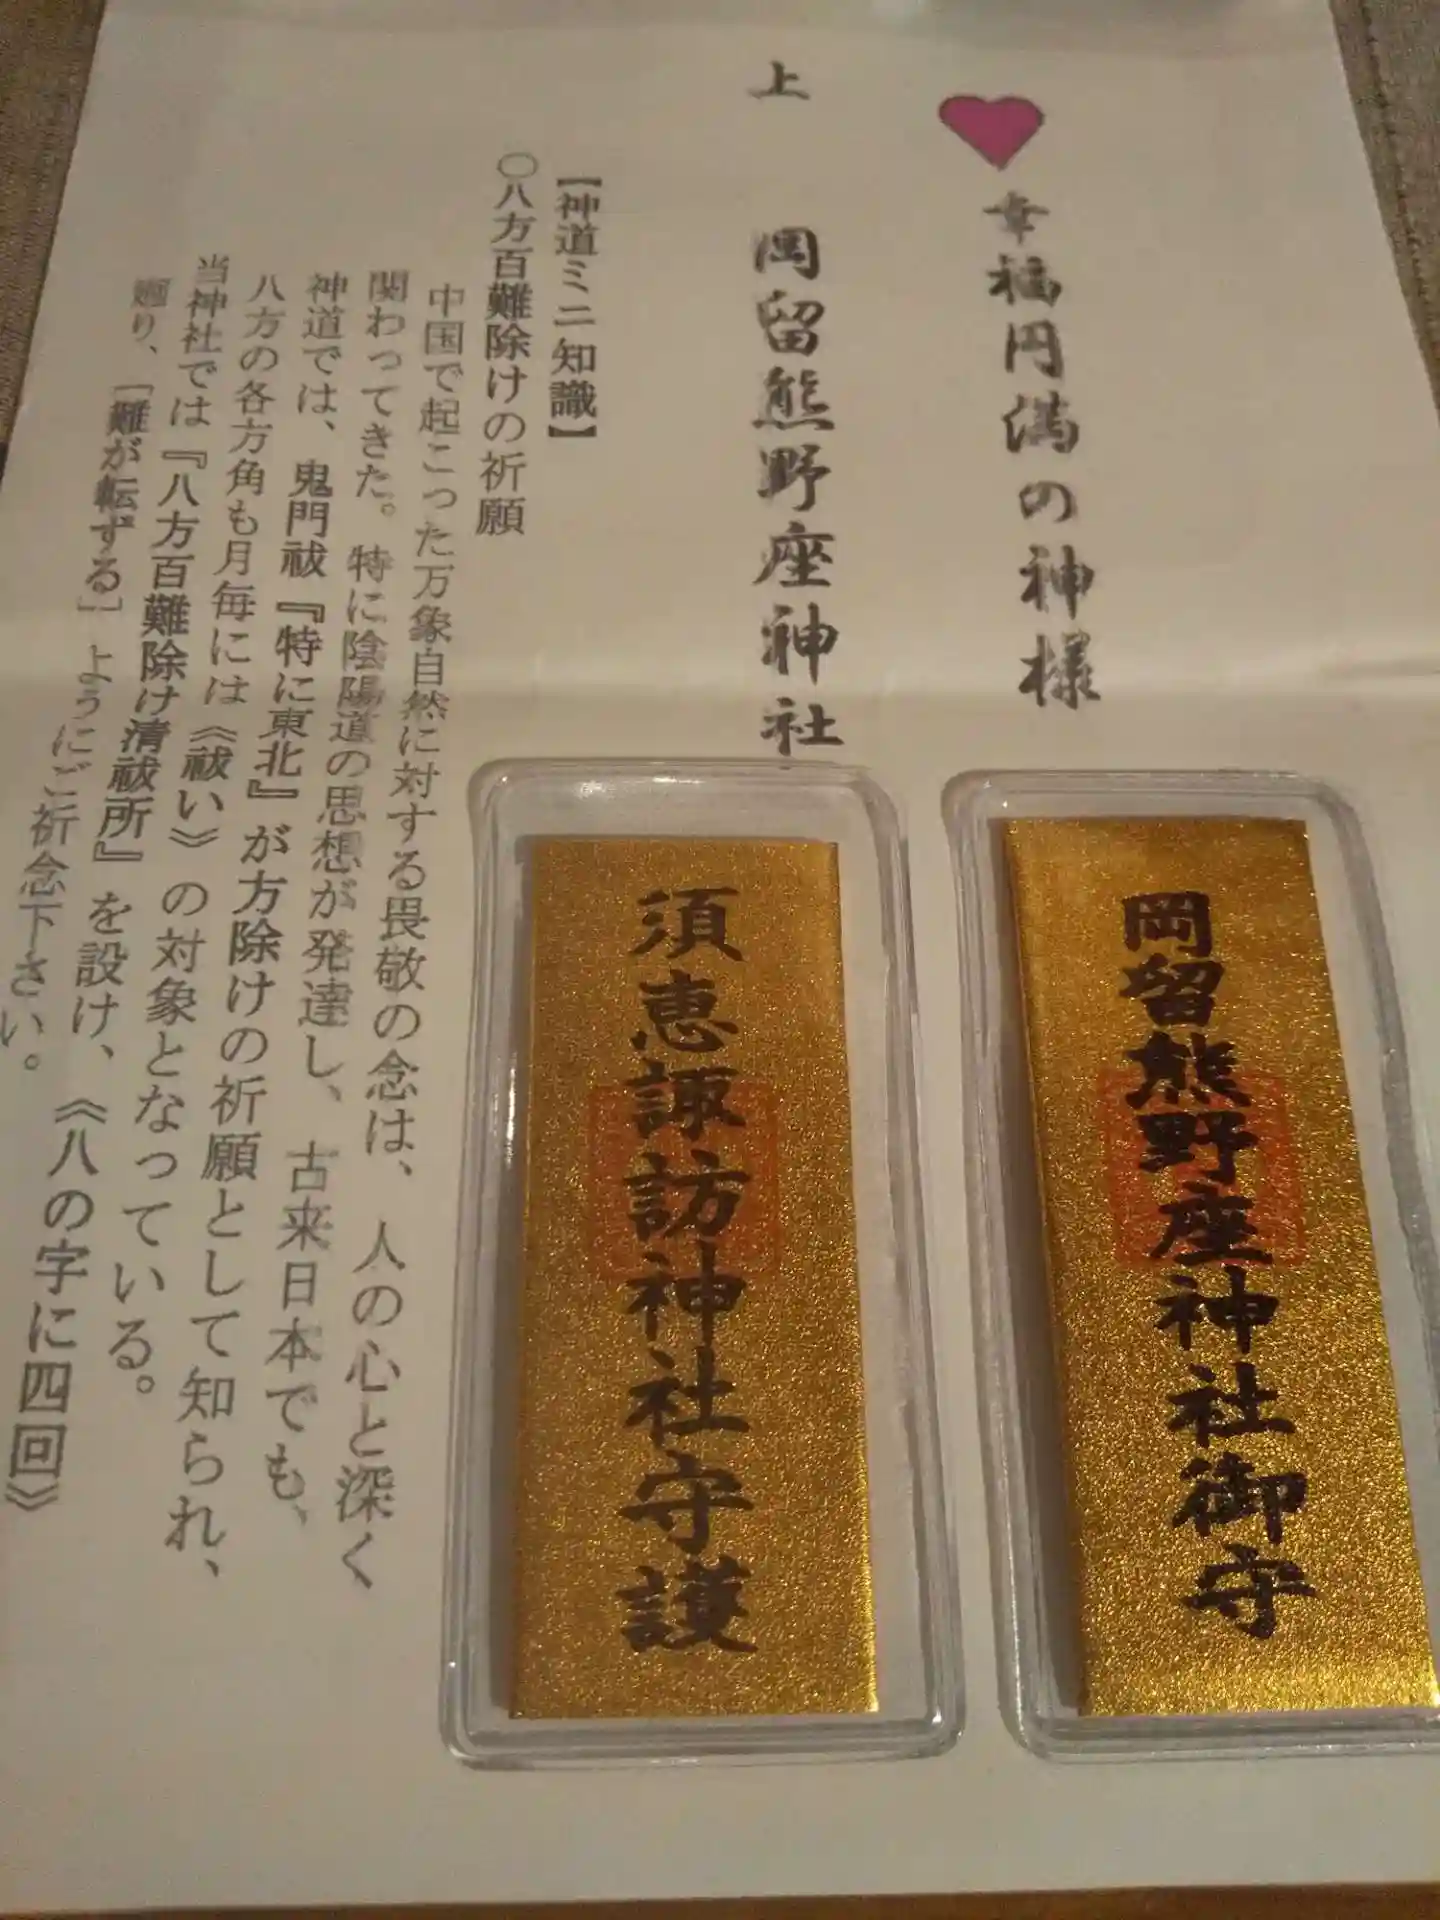 幸福円満の神様
上 岡留熊野座神社
【神道ミニ知識】
〇八方百難除けの祈願
中国で起こった万象自然に対する畏敬の念は、人の心と深く
関わってきた。特に陰陽道の思想が発達し、古来日本でも、
神道では、鬼門祓『特に東北』が方除けの祈願として知られ、
八方の各方角も月毎には《祓い》の対象となっている。
当神社では『八方百難除け清祓所』を設け、《八の字に四回》
廻り、［難が転ずる］ようにご祈念下さい。
岡留熊野座神社御守
須恵諏訪神社守護